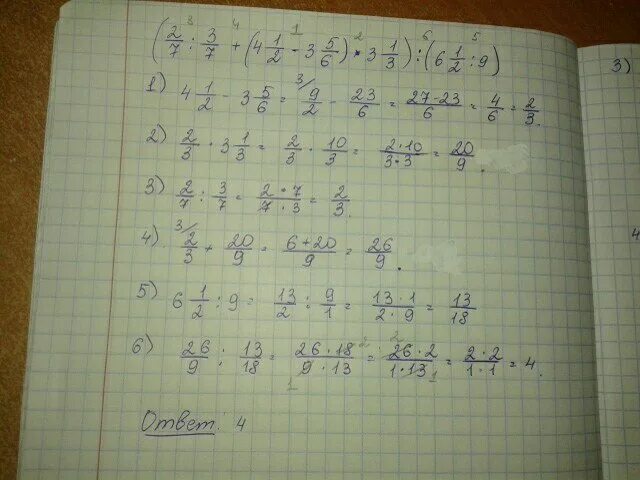 3 4 1 2 6 5
(2/7 : 3/7 + (4 1/2 - 3 5/6) * 3 1/3) : (6 1/2 : 9)
1) 4 1/2 - 3 5/6 = 3/ 9/2 - 23/6 = 27-23/6 = 4/6 = 2/3.
2) 2/3 · 3 1/3 = 2/3 · 10/3 = 2·10/3·3 = 20/9.
3) 2/7 : 3/7 = 2·7/7·3 = 2/3.
4) 3/ 2/3 + 20/9 = 6+20/9 = 26/9.
5) 6 1/2 : 9 = 13/2 : 9/1 = 13·1/2·9 = 13/18
6) 26/9 : 13/18 = 26·18 2/9·13 1 = 2 26·2/1·13 1 = 2·2/1·1 = 4.
Ответ: 4
3)
4